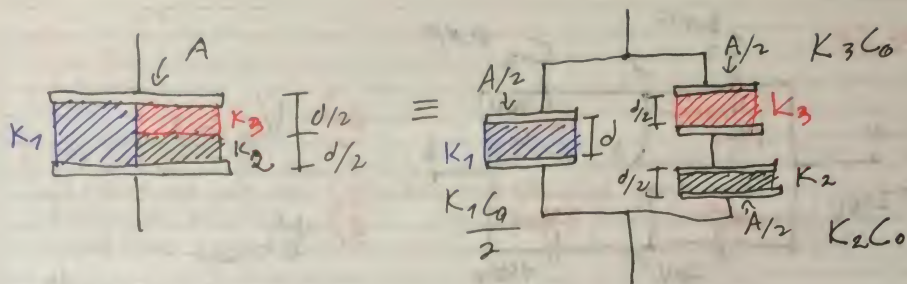 A
K1
K3
K2
d/2
d/2
≡
A/2
K1
d
K1C0
2
A/2
K3C0
d/2
K3
d/2
K2
A/2
K2C0